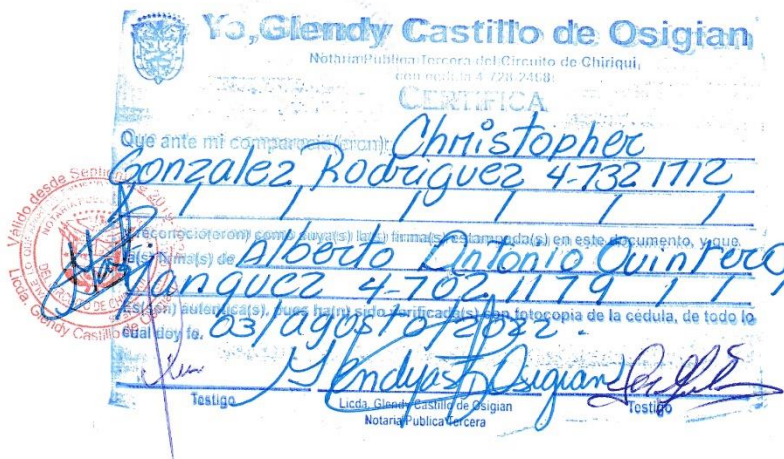 Yo, Glendy Castillo de Osigian
Notaria Publica Tercera del Circuito de Chiriqui,
con cedula 4-728-2468
CERTIFICA
Que ante mi compareció(eron) Christopher
Gonzalez Rodriguez 4-732 1712
reconocio(eron) como suya(s) la(s) firma(s) estampada(s) en este documento, y que
la(s) firma(s) de Alberto Antonio Quintero
4-702 1179
autentica(s), pues ha(n) sido verificada(s) con fotocopia de la cédula, de todo lo
cual doy fe. 03/agosto/2022.
Testigo
Licda. Glendy Castillo de Osigian
Notaria Publica Tercera
Testigo
Valido desde Septiembre
Licda. Glendy Castillo de